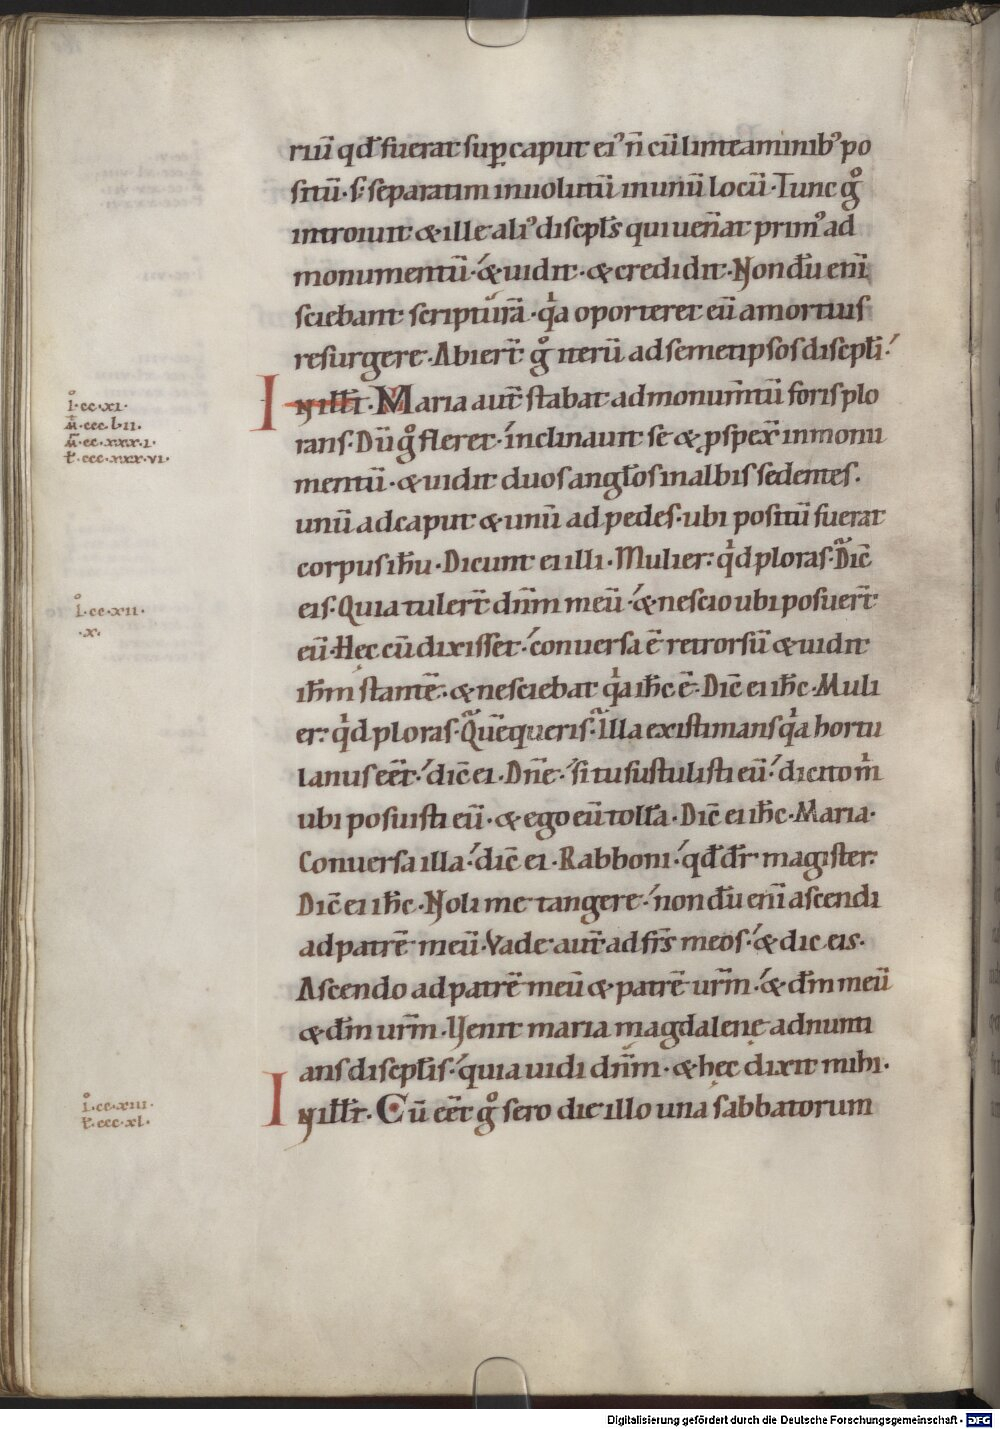 riū qđ fuerat sup̱ caput eiꝰ ñ cū linteaminibꝰ po
sitū · s; separatim inuolutū in unū locū · Tunc g̊
introiuit & ille aliꝰ discipl̄s qui uen̄at primꝰ ad
monumentū · & uidit · & credidit · Nondū eni͞
sciebant scripturā · qͥa oporteret eū a mortuis
resurgere · Abiert̄ g̊ iterū ad semetipsos discipl̄i ·
I
N ill̄ t̄ · Maria aut̄ stabat ad monum̄tū foris plo
rans · Dū g̊ fleret · inclinauit se & ꝓspex̄ in monu
mentū · & uidit duos angl̄os in albis sedentes ·
unū ad caput & unū ad pedes · ubi positū fuerat
corpus ih̄u · Dicunt ei illi · Mulier · qͥd ploras · Dic̄
eis · Quia tulert̄ dn̄m meū · & nescio ubi posuert̄
eū · Hęc cū dixisset · conuersa ē retrorsū & uidit
ih̄m stantē · & nesciebat qͥa ih̄c ē · Dic̄ ei ih̄c · Muli
er · qͥd ploras · Quē queris · Illa existimans qͥa hortu
lanus eēt · dic̄ ei · Dn̄e · si tu sustulisti eū · dicito mͥ
ubi posuisti eū · & ego eū toll̄a · Dic̄ ei ih̄c · Maria ·
Conuersa illa · dic̄ ei · Rabboni · qđ dr̄ magister ·
Dic̄ ei ih̄c · Noli me tangere · nondū eni͞ ascendi
ad patrē meū · Vade aut̄ ad fr̄s meos · & dic eis ·
Ascendo ad patrē meū & patrē ur̄m · & dm̄ meū
& dm̄ ur̄m · Uenit maria magdalene adnunti
ans discipl̄is · quia uidi dn̄m · & hęc dixit mihi ·
I
N ill̄ t̄ · Cū eēt g̊ sero die illo una sabbatorum
I̊ · cc · xi ·
M̄ · ccc · l · ii ·
M̄ · cc · xxx · i ·
L̄ · ccc · xxx · vi ·
I̊ · cc · xii ·
· x ·
I̊ · cc · xiii ·
L̄ · ccc · xl ·
Digitalisierung gefördert durch die Deutsche Forschungsgemeinschaft · DFG